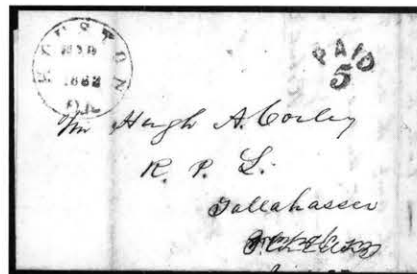 HOUSTON
1862
PAID
5
Mr Hugh A. Corley
R. P. L.
Tallahassee